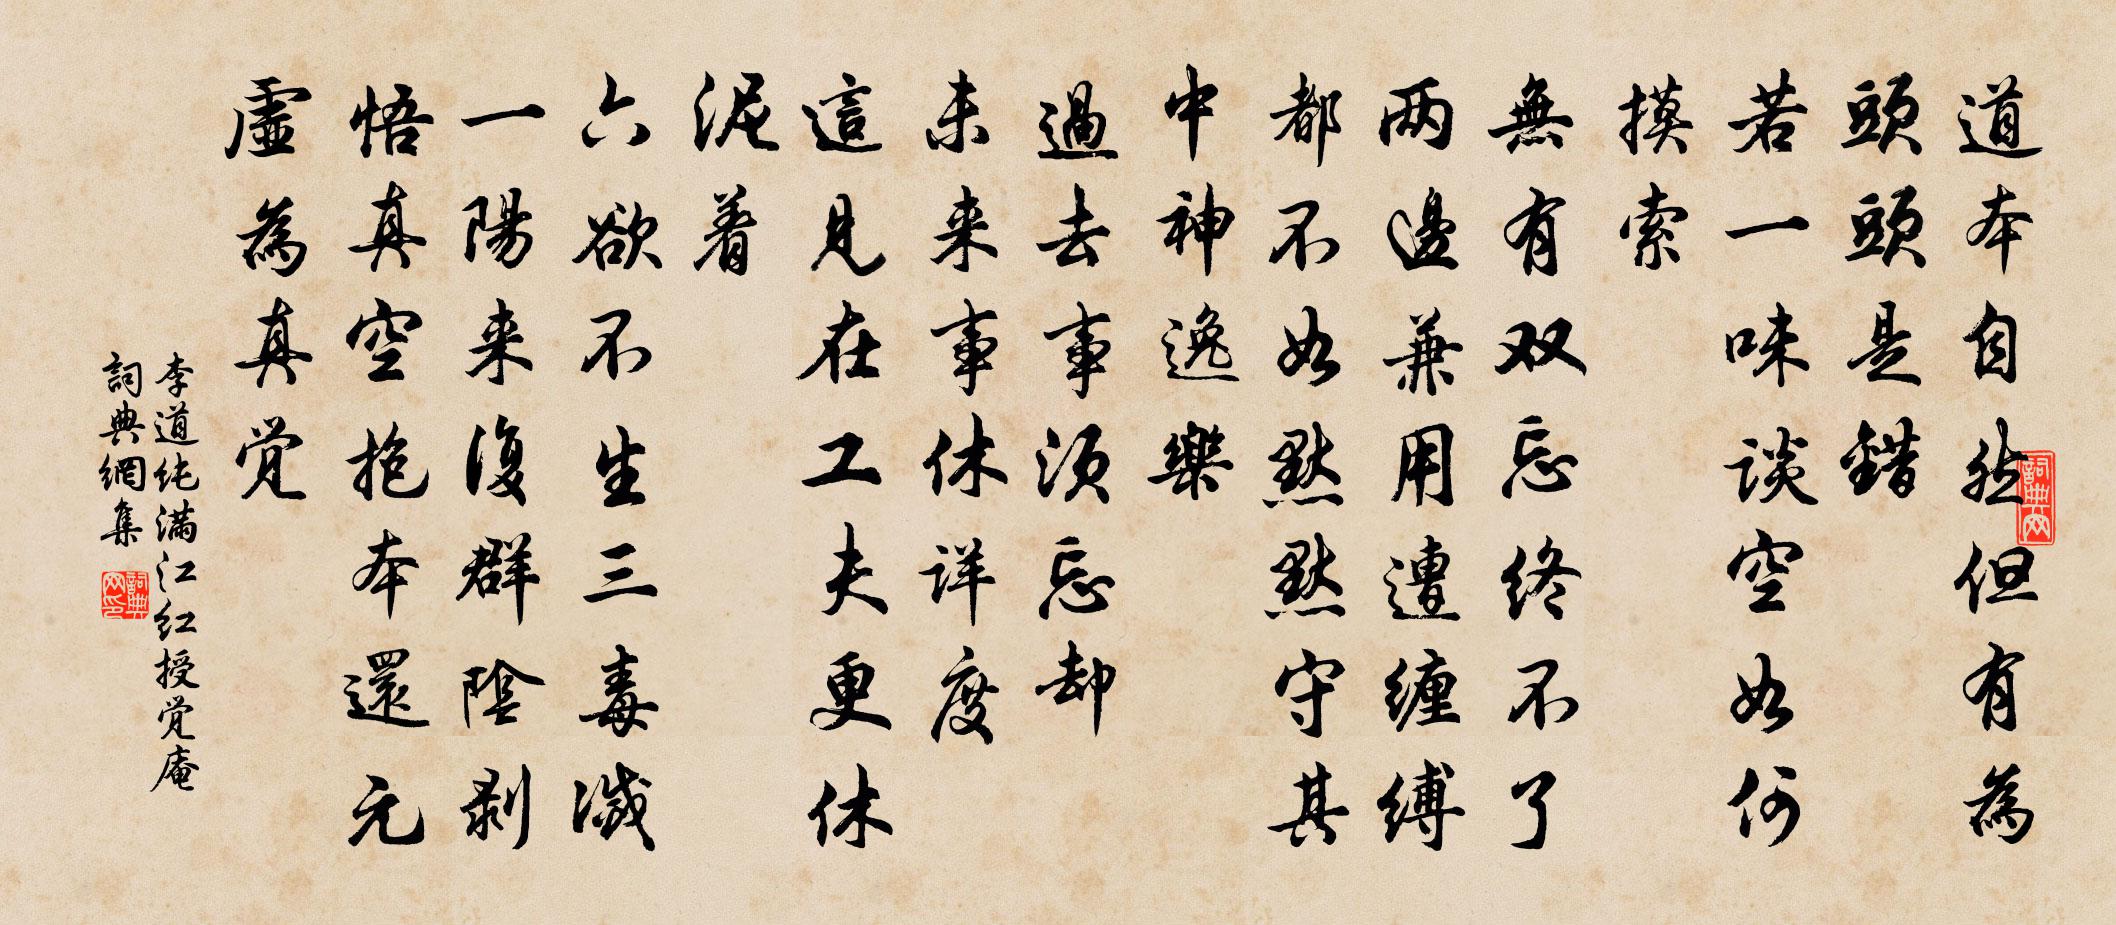 道本自然但有為
頭頭是錯
若一味談空如何
摸索
無有双忘终不了
两邊兼用遭缠缚
都不如黙黙守其
中神逸樂
過去事須忘却
未来事休详度
這見在工夫更休
泥着
六欲不生三毒滅
一陽来復群陰剥
悟真空抱本還元
虛為真覚
李道纯满江红授覚庵
詞典網集
詞典网
詞典网印